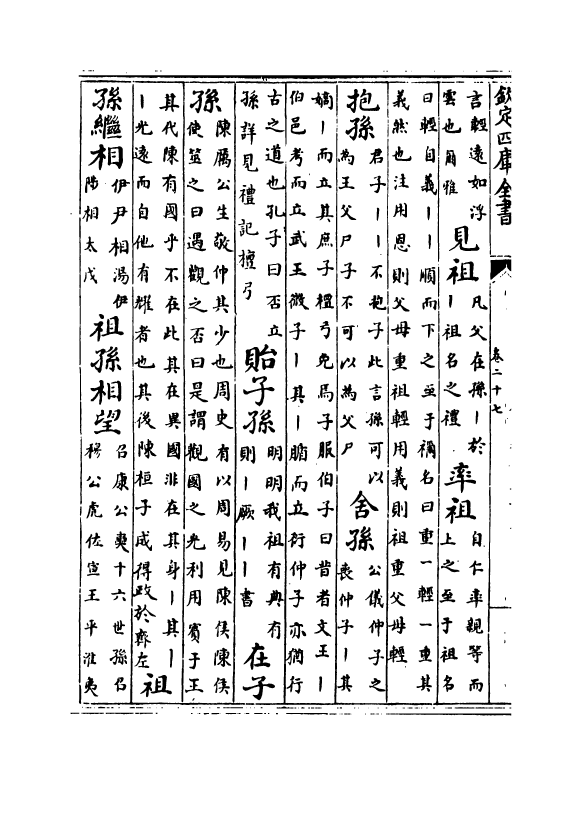 欽定四庫全書
卷二十七
言輕遠如浮
雲也爾雅
見祖
凡父在孫丨於
丨祖名之禮
率祖
自仁率親等而
上之至于祖名
曰輕自義丨丨順而下之至于禰名曰重一輕一重其
義然也注用恩則父母重祖輕用義則祖重父母輕
抱孫
君子丨丨不抱子此言孫可以
為王父尸子不可以為父尸
舍孫
公儀仲子之
喪仲子丨其
嫡丨而立其庶子檀弓免焉子服伯子曰昔者文王丨
伯邑考而立武王微子丨其丨腯而立衍仲子亦猶行
古之道也孔子曰否立
孫詳見禮記檀弓
貽子孫
明明我祖有典有
則丨厥丨丨書
在子
孫
陳厲公生敬仲其少也周史有以周易見陳侯陳侯
使筮之曰遇觀之否曰是謂觀國之光利用賓于王
其代陳有國乎不在此其在異國非在其身丨其丨
丨光遠而自他有耀者也其後陳桓子成得政於齊左
祖
孫繼相
伊尹相湯伊
陟相太戊
祖孫相望
召康公奭十六世孫召
穆公虎佐宣王平淮夷